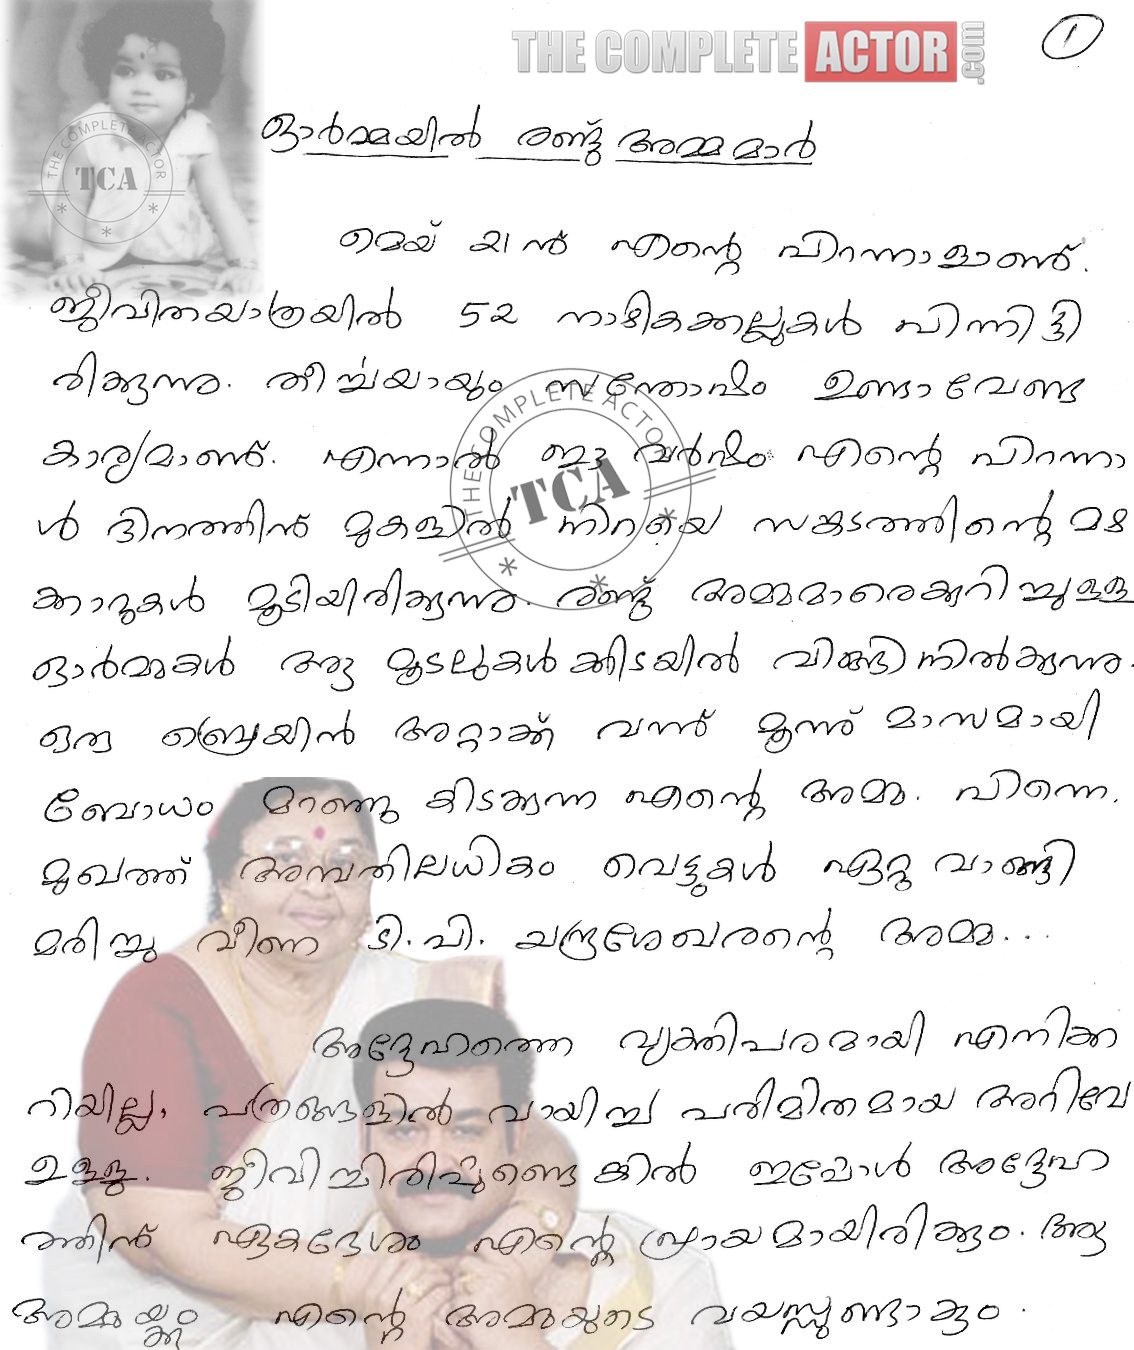 THE COMPLETE ACTOR.com
1
ഓർമ്മയിൽ രണ്ട് അമ്മമാർ
THE COMPLETE ACTOR
TCA
മെയ് 21 ന് എന്റെ പിറന്നാളാണ്.
ജീവിതയാത്രയിൽ 52 നാഴികക്കല്ലുകൾ പിന്നിട്ടി
രിക്കുന്നു. തീർച്ചയായും സന്തോഷം ഉണ്ടാവേണ്ട
കാര്യമാണ്. എന്നാൽ ഈ വർഷം എന്റെ പിറന്നാ
ൾ ദിനത്തിന് മുകളിൽ നിറയെ സങ്കടത്തിന്റെ മഴ
ക്കാറുകൾ മൂടിയിരിക്കുന്നു. രണ്ട് അമ്മമാരെക്കുറിച്ചുള്ള
ഓർമ്മകൾ ആ മൂടലുകൾക്കിടയിൽ വിങ്ങിനിൽക്കുന്നു.
ഒരു ബ്രെയിൻ അറ്റാക്ക് വന്ന് മൂന്ന് മാസമായി
ബോധം മറഞ്ഞു കിടക്കുന്ന എന്റെ അമ്മ. പിന്നെ,
മുഖത്ത് അമ്പതിലധികം വെട്ടുകൾ ഏറ്റു വാങ്ങി
മരിച്ചു വീണ ടി.പി. ചന്ദ്രശേഖരന്റെ അമ്മ...
അദ്ദേഹത്തെ വ്യക്തിപരമായി എനിക്ക
റിയില്ല, പത്രങ്ങളിൽ വായിച്ച പരിമിതമായ അറിവേ
ഉള്ളു. ജീവിച്ചിരിപ്പുണ്ടെങ്കിൽ ഇപ്പോൾ അദ്ദേഹ
ത്തിന് ഏകദേശം എന്റെ പ്രായമായിരിക്കും. ആ
അമ്മയ്ക്കും എന്റെ അമ്മയുടെ വയസ്സുണ്ടാകും.
THE COMPLETE ACTOR
TCA